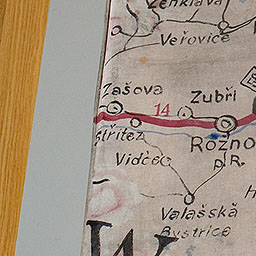 Zenklava
Veřovice
Zašova
14
Zubři
Střítež
Rožno
p.R.
Vidče
H
Valašská
Bystrice
W